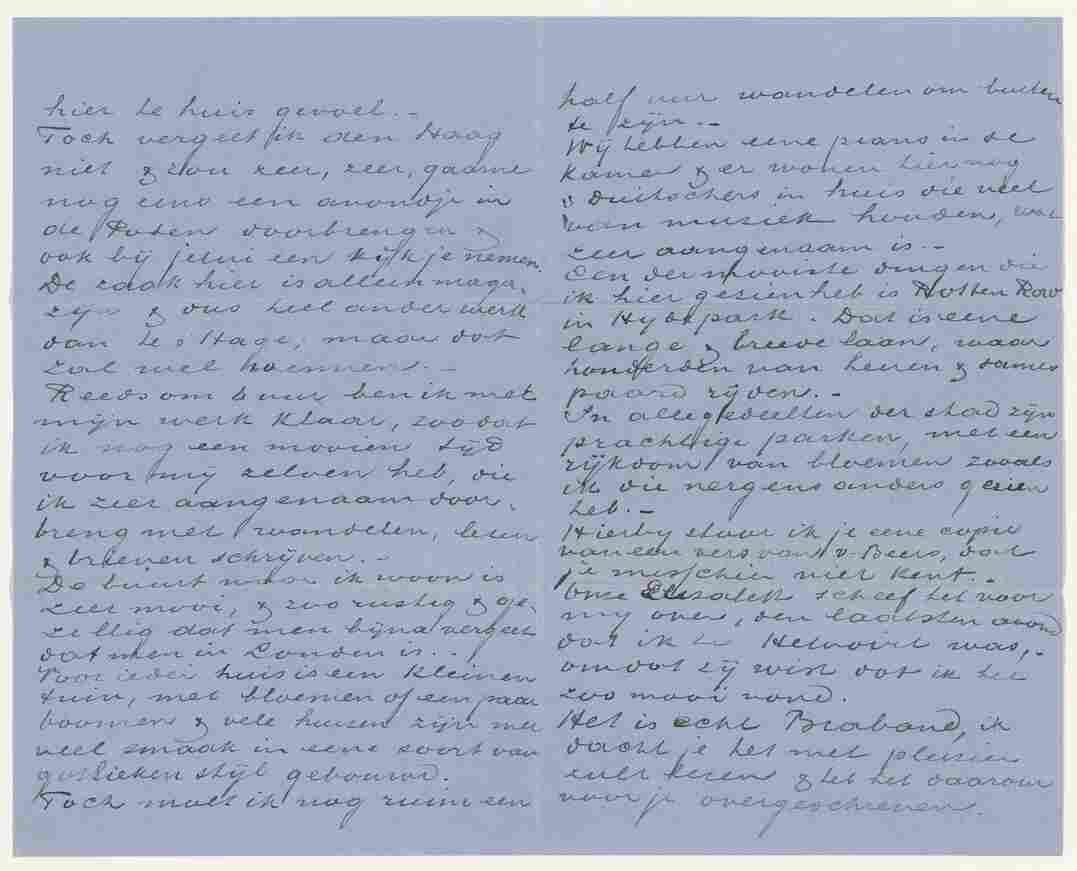 hier te huis gevoel.–
Toch vergeet ik den Haag
niet & zou zeer, zeer, gaarne
nog eens een avondje in
de Poten doorbrengen &
ook bij jelui een kijkje nemen.
De zaak hier is alleen maga-
zijn & dus heel ander werk
dan te s Hage, maar dat
zal wel wennen.–
Reeds om 6 uur ben ik met
mijn werk klaar, zoodat
ik nog een mooien tijd
voor mij zelven heb, die
ik zeer aangenaam door-
breng met wandelen, lezen
& brieven schrijven.–
De buurt waar ik woon is
zeer mooi, & zoo rustig & ge-
zellig dat men bijna vergeet
dat men in Londen is..
Voor ieder huis is een kleinen
tuin, met bloemen of een paar
boomen & vele huizen zijn met
veel smaak in eene soort van
gothieken stijl gebouwd.
Toch moet ik nog ruim een
half uur wandelen om buiten
te zijn.–
Wij hebben eene piano in de
kamer & er wonen hier nog
3 Duitschers in huis die veel
van muziek houden, wat
zeer aangenaam is.–
Een der mooiste dingen die
ik hier gezien heb is Rotten Row
in Hydepark. Dat is eene
lange & breede laan, waar
honderden van heeren & dames
paard rijden.–
In alle gedeelten der stad zijn
prachtige parken, met een
rijkdom van bloemen zooals
ik die nergens anders gezien
heb.–
Hierby stuur ik je eene copie
van een vers van v. Beers, dat
je misschien niet kent.–
Onze Elisabeth schreef het voor
my over, den laatsten avond
dat ik te Helvoirt was,–
omdat zij wist dat ik het
zoo mooi vond.
Het is echt Braband, ik
dacht je het met plezier
zult lezen & heb het daarom
voor je overgeschreven.